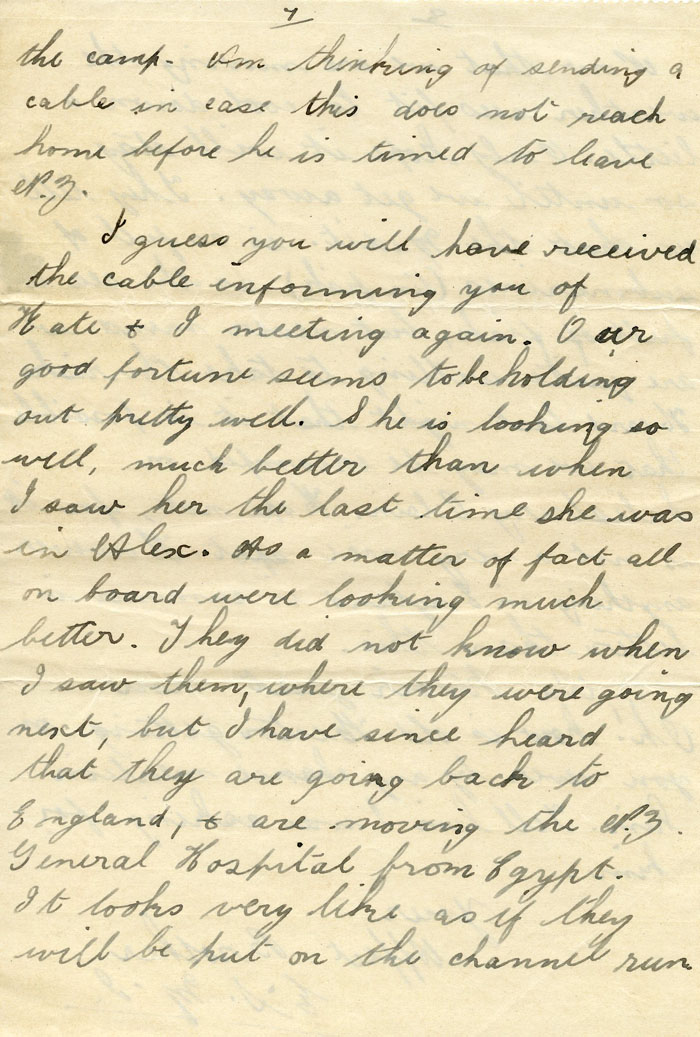 7
the camp. Am thinking of sending a
cable in case this does not reach
home before he is timed to leave
N.Z.
I guess you will have received
the cable informing you of
Kate & I meeting again. Our
good fortune seems to be holding
out pretty well. She is looking so
well, much better than when
I saw her the last time she was
in Alex. As a matter of fact all
on board were looking much
better. They did not know when
I saw them, where they were going
next, but I have since heard
that they are going back to
England, & are moving the N.Z.
General Hospital from Egypt.
It looks very like as if they
will be put on the channel run